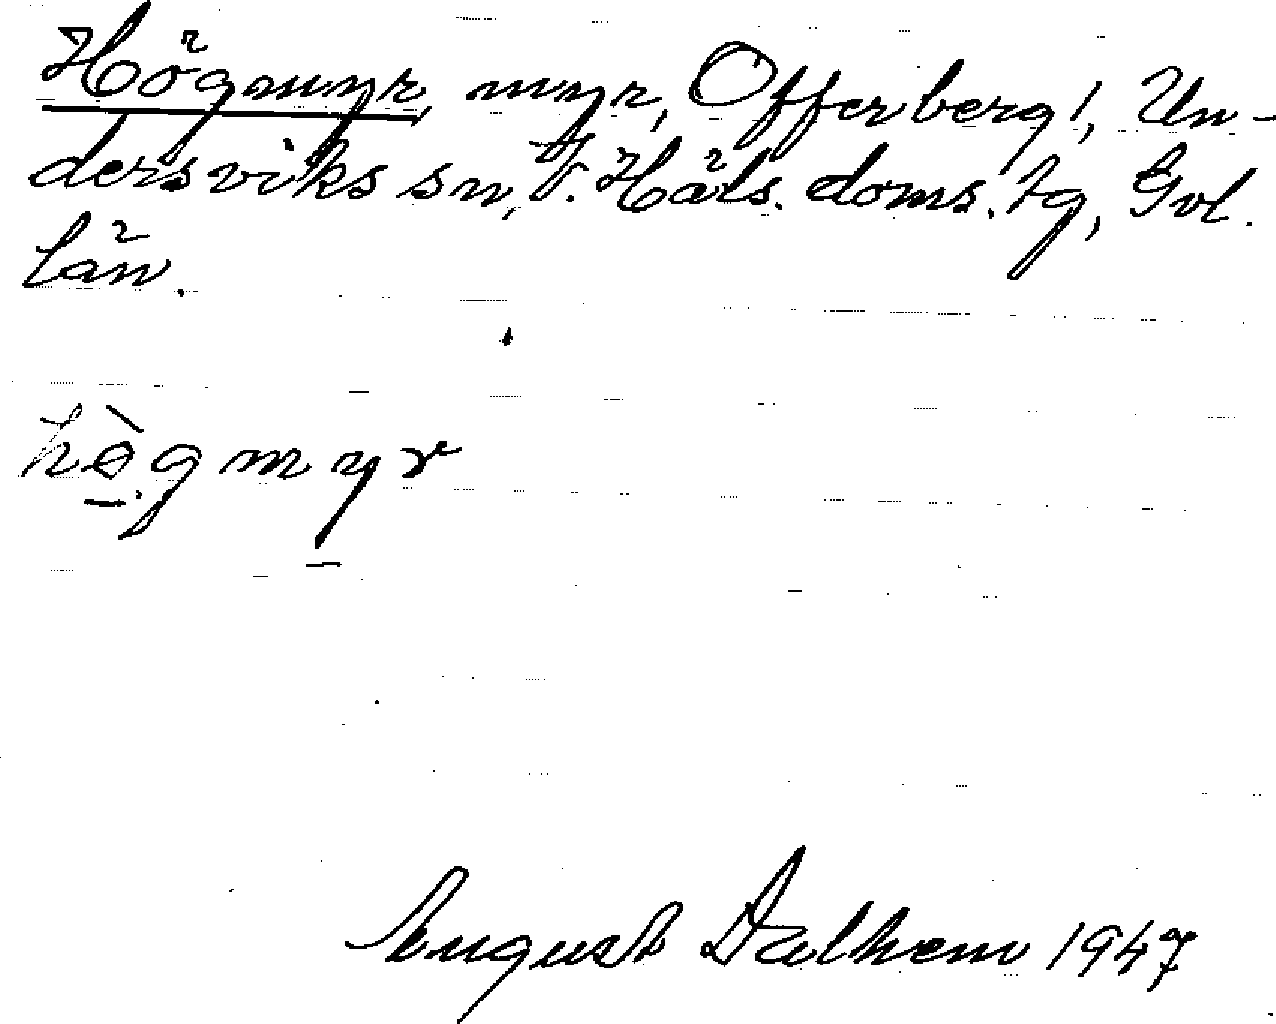 Högmyr, myr, Offerberg!, Un-
dersviks sn, V. Häls. doms. tg, Gvl.
län.
hògmyr
August Dalhem 1947